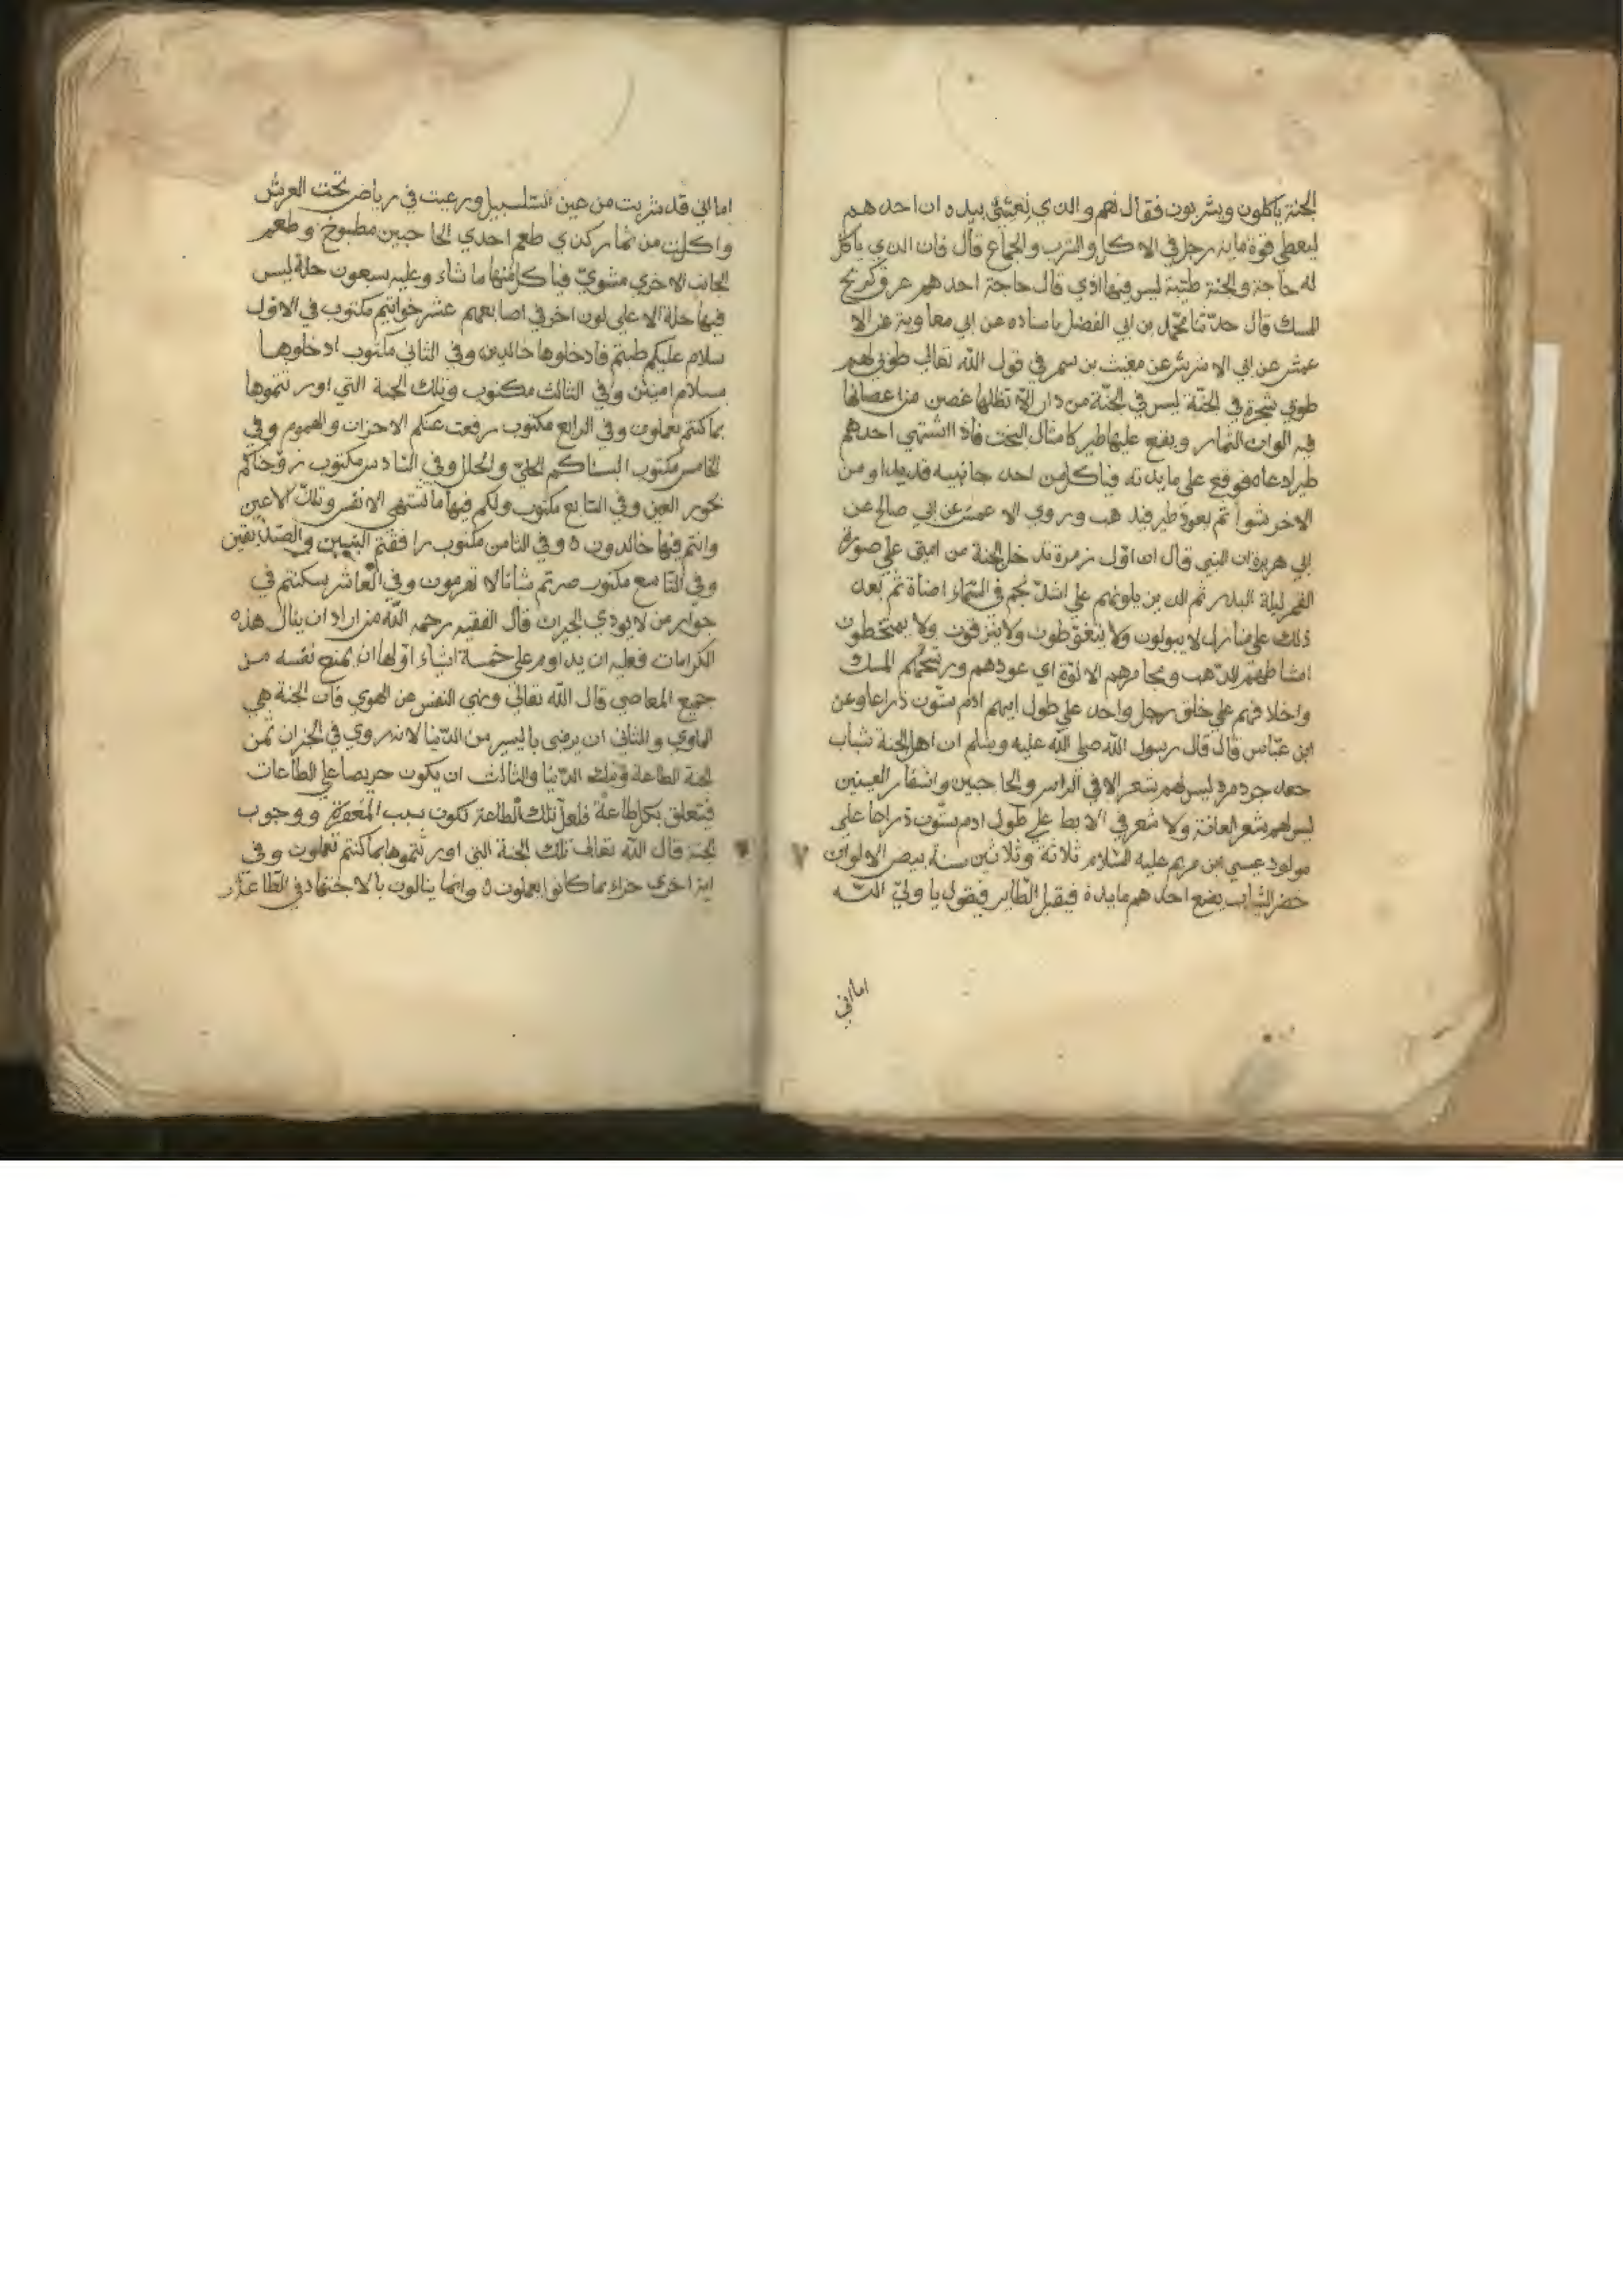 الجنة ياكلون ويشربون فقال نعم والذي نفسي بيده ان احدهم
ليعطي قوة ماية رجل في الاكل والشرب والجماع قال فان الذي ياكل
له حاجة والجنة طيبة ليس فيها اذي قال حاجة احدهم عرق كريح
المسك قال حدثنا محمد بن ابي الفضل باسناده عن ابي معاوية عن الا
عمش عن ابي الا شرش عن مغيث بن سمي في قول الله تعالى طوبي لهم
طوبي شجرة في الجنة ليس في الجنة من دار الا تظلها غصن من اغصانها
فيه الوان الثمار ويقع عليها طير كامثال البخت فاذا اشتهي احدهم
طيرا دعاه فوقع علي مايدته فياكل من احد جانبيه قديدا ومن
الاخر شوا ثم يعود طير فيذهب وروي الا عمش عن ابي صالح عن
ابي هريرة ان النبي قال ان اول زمرة تدخل الجنة من امتي علي صورة
القمر ليلة البدر ثم الذين يلونهم علي اشد نجم في السماء اضاة ثم بعد
ذلك علي منازل لا يبولون ولا يتغوطون ولا يبزقون ولا يمتخطون
امشاطهم الذهب ومجامرهم الالوة اي عودهم وريحكم المسك
واخلاقهم علي خلق رجل واحد علي طول ابيهم ادم ستون ذراعا وعن
ابن عباس قال قال رسول الله صلى الله عليه وسلم ان اهل الجنة شباب
جعد جرد مرد ليس لهم شعر الا في الراس والحاجبين واشفار العينين
ليس لهم شعر العانة ولا شعر في الابط علي طول ادم ستون ذراعا علي
مولود عيسي ابن مريم عليه السلام ثلاثة وثلاثين سنة بيض الالوان
خضر الثياب يضع احدهم مايدة فيقبل الطاير فيقول يا ولي الله
اما اني
اما اني قد شربت من عين السلسبيل ورعيت في رياض تحت العرش
واكلت من ثمار كذي طعم احدي الحاجبين مطبوخ وطعم
الجانب الاخري مشوي فياكل منها ما شاء وعليه سبعون حلة ليس
فيها حلة الا على لون اخر في اصابعهم عشر خواتيم مكتوب في الاول
سلام عليكم طبتم فادخلوها خالدين وفي الثاني مكتوب ادخلوها
بسلام امنين وفي الثالث مكتوب وتلك الجنة التي اورثتموها
بما كنتم تعملون وفي الرابع مكتوب رفعت عنكم الاحزان والهموم وفي
الخامس مكتوب البسناكم الحلي والحلل وفي السادس مكتوب زوجناكم
بحور العين وفي السابع مكتوب ولكم فيها ما تشتهي الانفس وتلذ الاعين
وانتم فيها خالدون ٥ وفي الثامن مكتوب رافقتم النبيين والصديقين
وفي التاسع مكتوب صرتم شبانا لا تهرمون وفي العاشر سكنتم في
جوار من لا يوذي الجيران قال الفقيه رحمه الله من اراد ان ينال هذه
الكرامات فعليه ان يداوم على خمسة اشياء اولها ان يمنع نفسه من
جميع المعاصي قال الله تعالى ونهي النفس عن الهوي فان الجنة هي
الماوي والثاني ان يرضى باليسير من الدنيا لانه روي في الخبر ان ثمن
الجنة الطاعة وترك الدنيا والثالث ان يكون حريصا على الطاعات
فيتعلق بكل طاعة فلعل تلك الطاعة تكون سبب المغفرة ووجوب
الجنة قال الله تعالى تلك الجنة التي اورثتموها بما كنتم تعملون وفي
اية اخرى جزاء بما كانوا يعملون ٥ وانما ينالون بالاجتهاد في الطاعة